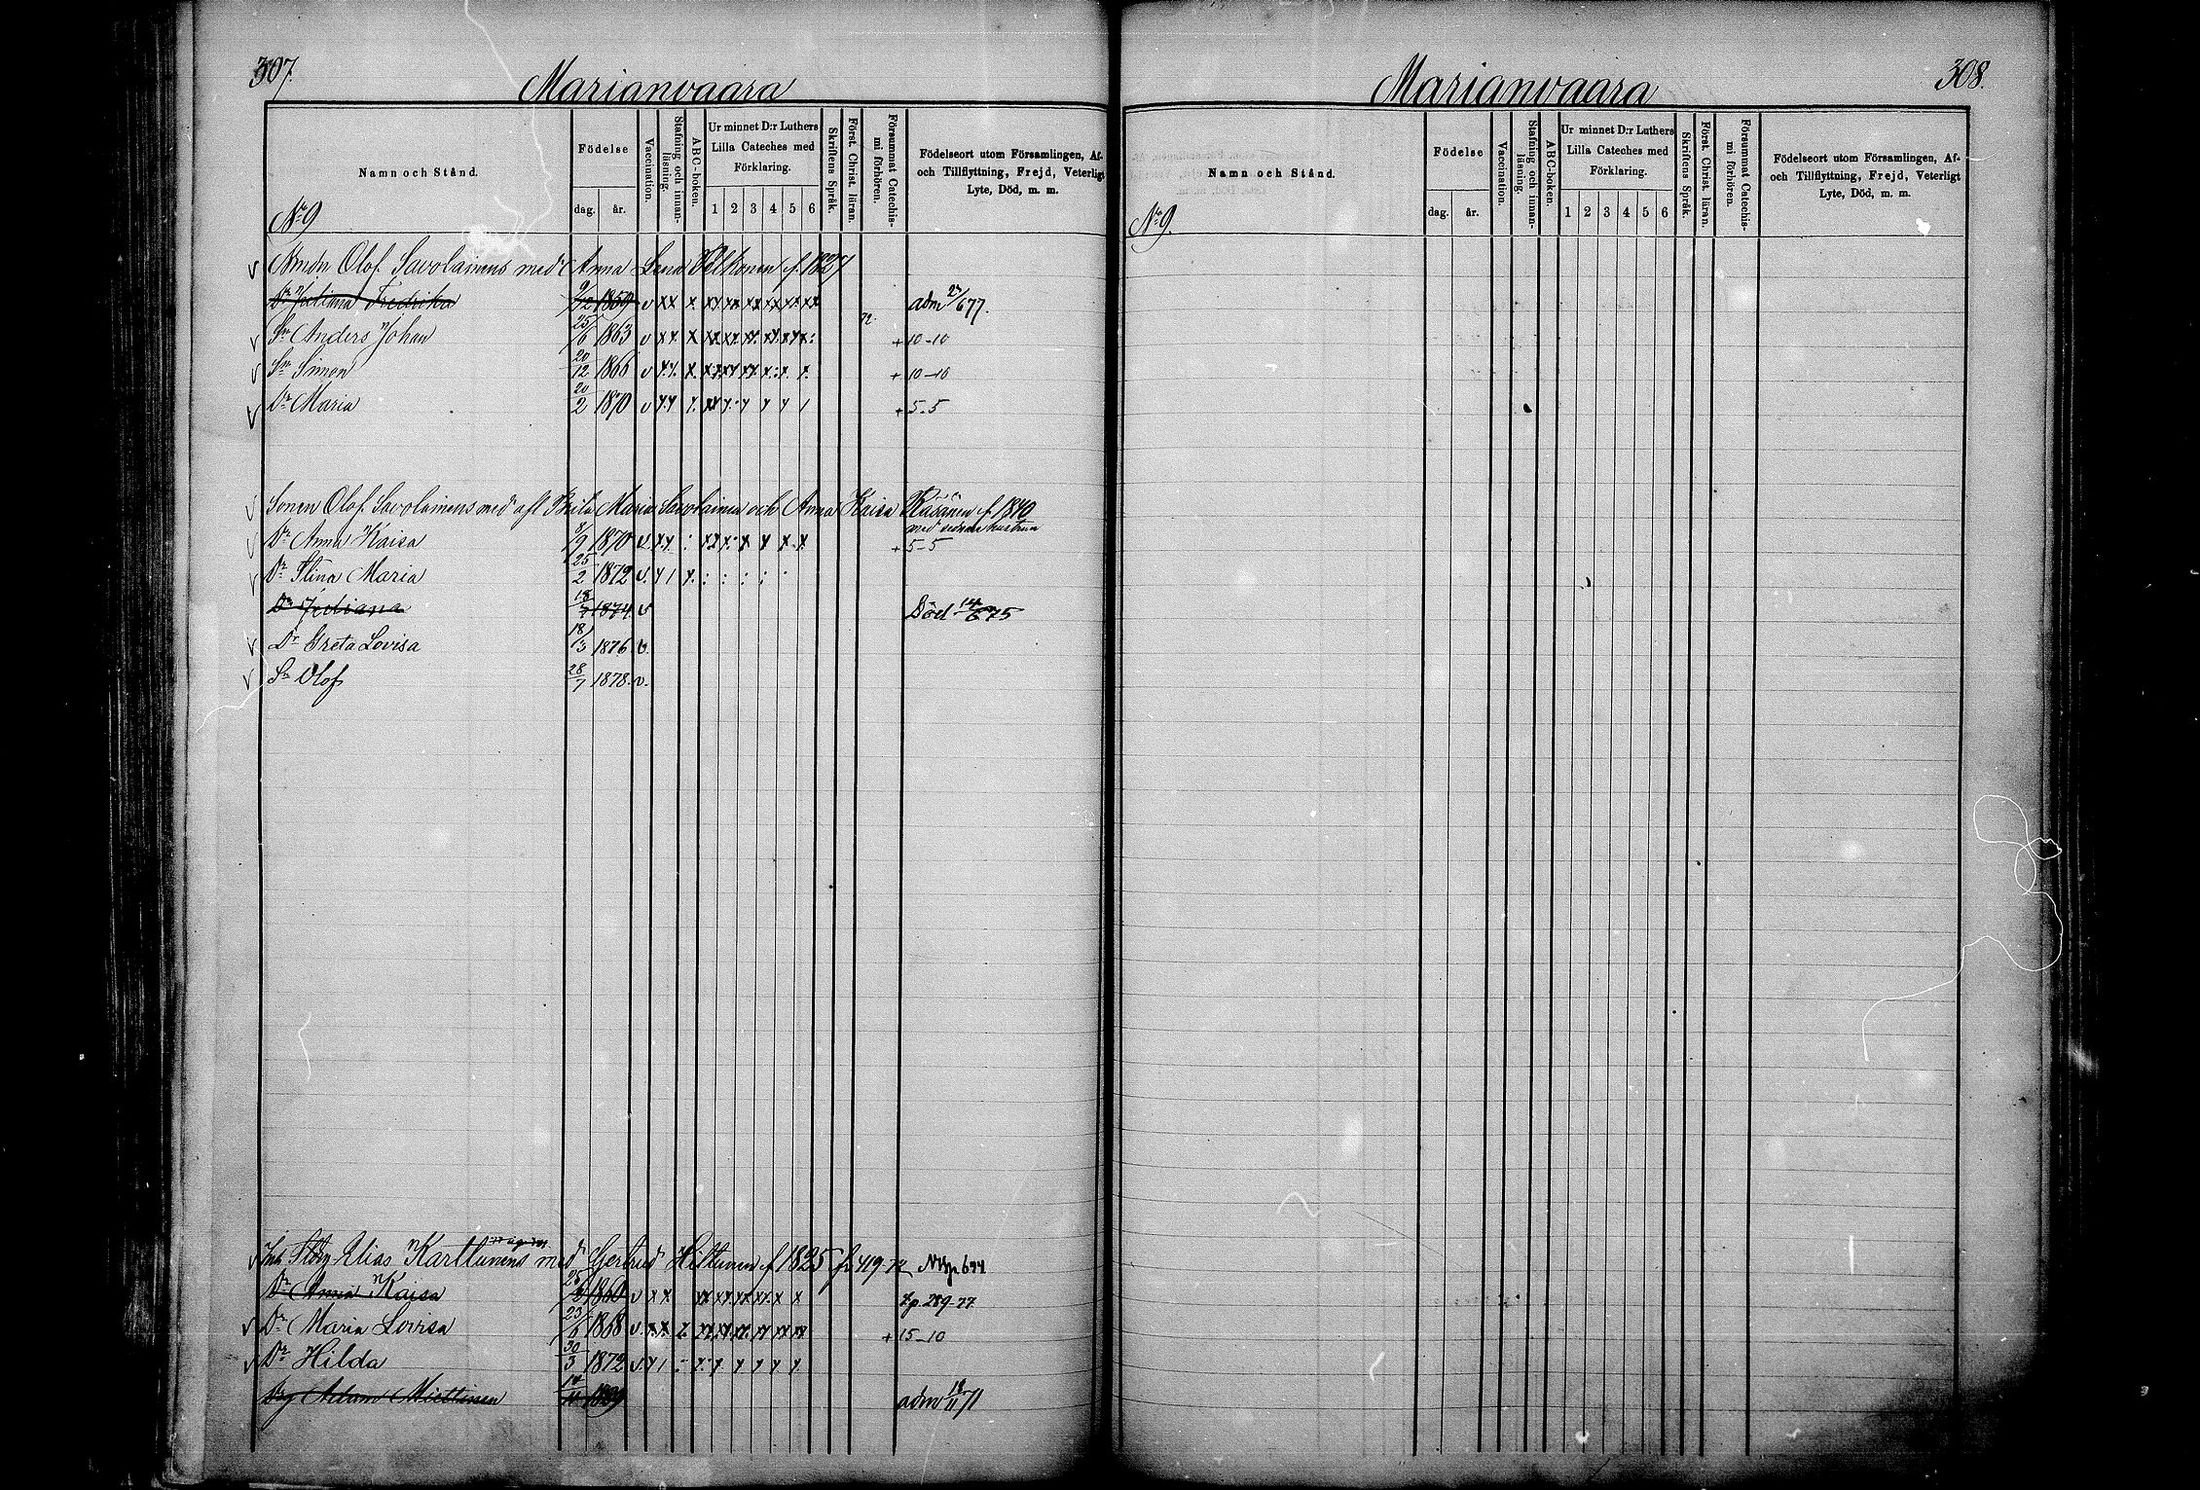 307.
Marianvaara
Namn och Stånd.
Födelse
dag. år.
Vaccination.
Stafning och innanläsning.
ABC-boken.
Ur minnet D:r Luthers Lilla Cateches med Förklaring.
1 2 3 4 5 6
Skriftens Språk.
Först. Christ. läran.
Försummat Catechismi förhören.
Födelseort utom Församlingen, Af- och Tillflyttning, Frejd, Veterligt Lyte, Död, m. m.
No 9
Olof Savolainens med Anna Lena f. 1827
Fredrika 1859 v adm 677.
Sn Anders Johan 25/6 1863 v + 10-10
Sn Simon 20/12 1866 v + 10-10
Dr Maria 20/2 1870 v + 5-5
Sonen Olof Savolainens med Maria Savolainen och Anna Kaisa Räsänen f. 1840
med sednare hustrun
Dr Anna Kaisa 8/9 1870 v + 5-5
Dr Stina Maria 25/2 1872 v
Dr 18/7 1874 v Död 14/6 75
Dr Greta Lovisa 18/3 1876 v.
Sn Olof 28/7 1878. v.
Inh Elias Karttunens med Gertrud f 1825 fr 419-72
Dr Anna Kaisa 1860 v tp. 289-77
Dr Maria Lovisa 23/6 1868 v. + 15-10
Dr Hilda 30/3 1872 v.
Adam Miettinen adm 18/11 71
308.
Marianvaara
Namn och Stånd.
Födelse
dag. år.
Vaccination.
Stafning och innanläsning.
ABC-boken.
Ur minnet D:r Luthers Lilla Cateches med Förklaring.
1 2 3 4 5 6
Skriftens Språk.
Först. Christ. läran.
Försummat Catechismi förhören.
Födelseort utom Församlingen, Af- och Tillflyttning, Frejd, Veterligt Lyte, Död, m. m.
No 9.